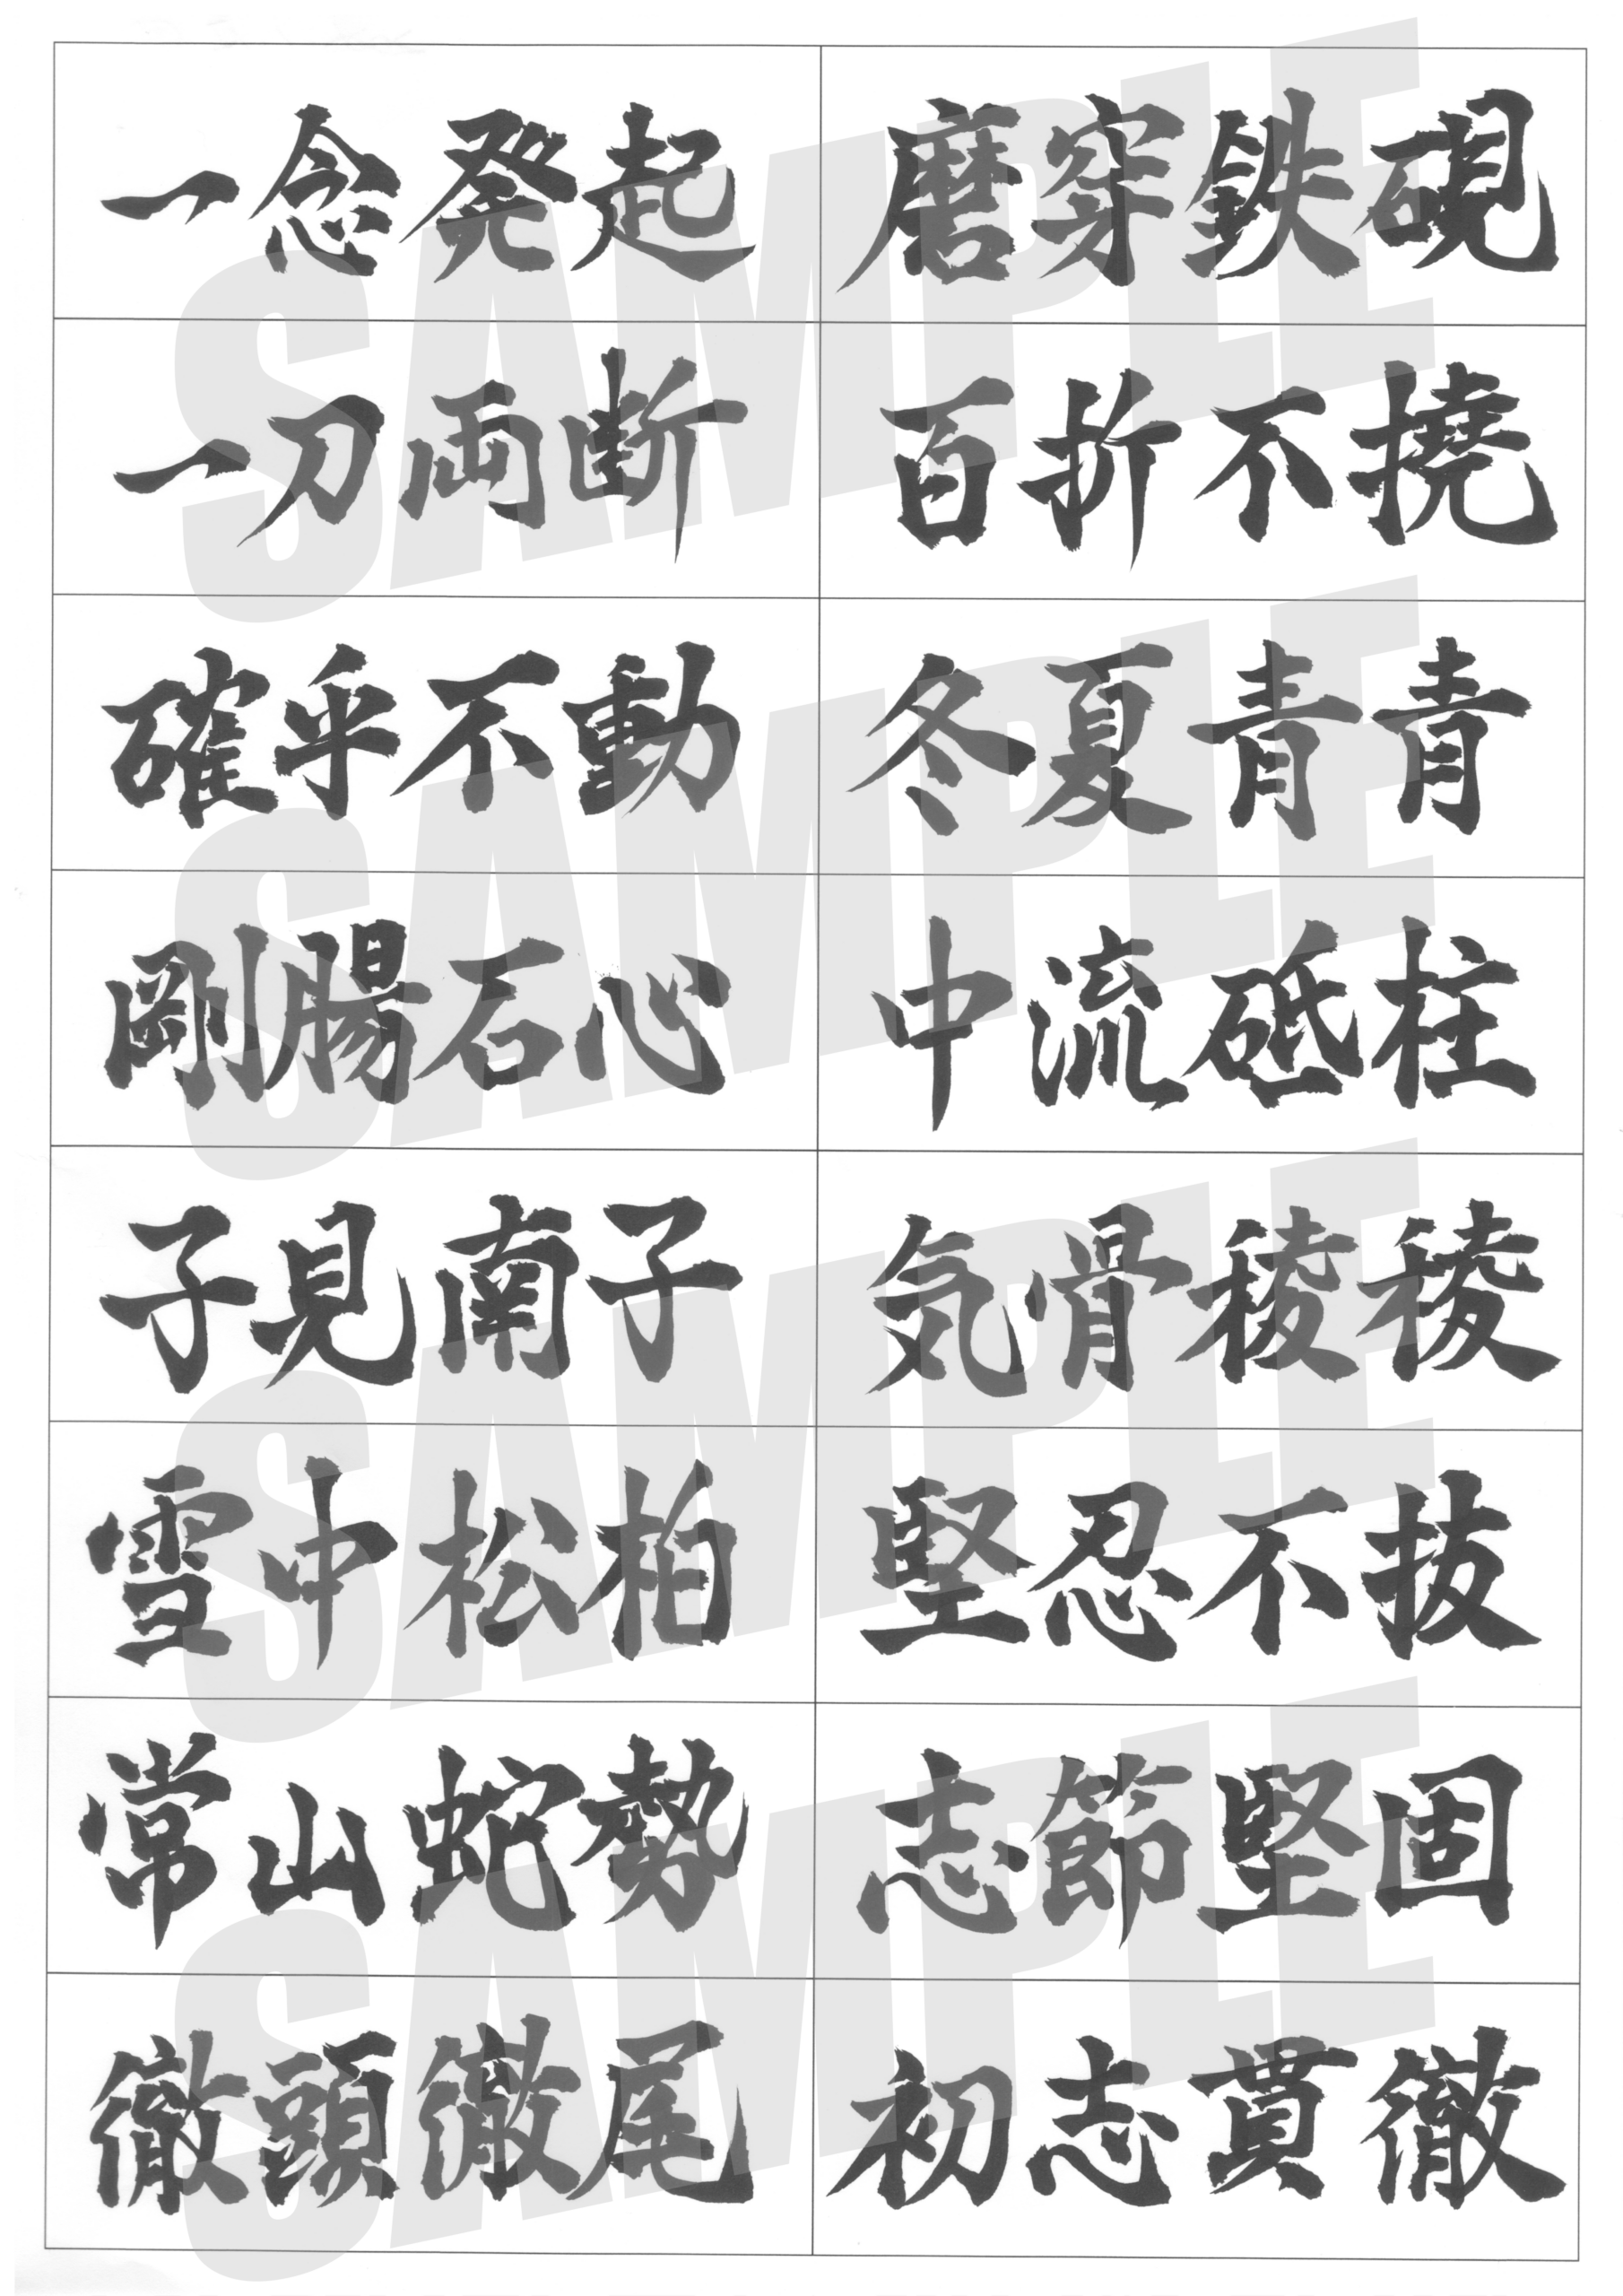 一念発起
磨穿鉄硯
一刀両断
百折不撓
確乎不動
冬夏青青
剛腸石心
中流砥柱
子見南子
気骨稜稜
雪中松柏
堅忍不抜
常山蛇勢
志節堅固
徹頭徹尾
初志貫徹
SAMPLE
SAMPLE
SAMPLE
SAMPLE